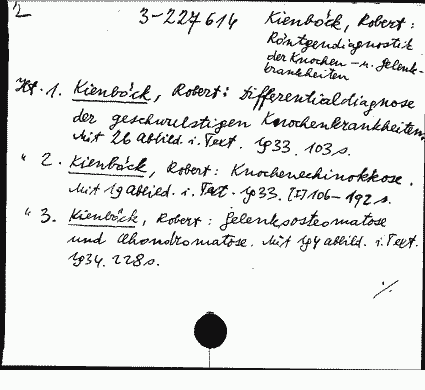 2
3-227614
Kienböck, Robert:
Röntgendiagnostik
der Knochen- u. Gelenk-
krankheiten
Hft. 1. Kienböck, Robert: Differentialdiagnose
der geschwulstigen Knochenkrankheiten.
Mit 26 Abbild. i. Text. 1933. 103 s.
" 2. Kienböck, Robert: Knochenechinokkose.
Mit 19 Abbild. i. Text. 1933. [I] 106-192 s.
" 3. Kienböck, Robert: Gelenksosteomatose
und Chondromatose. Mit 194 Abbild. i. Text.
1934. 228 s.
%